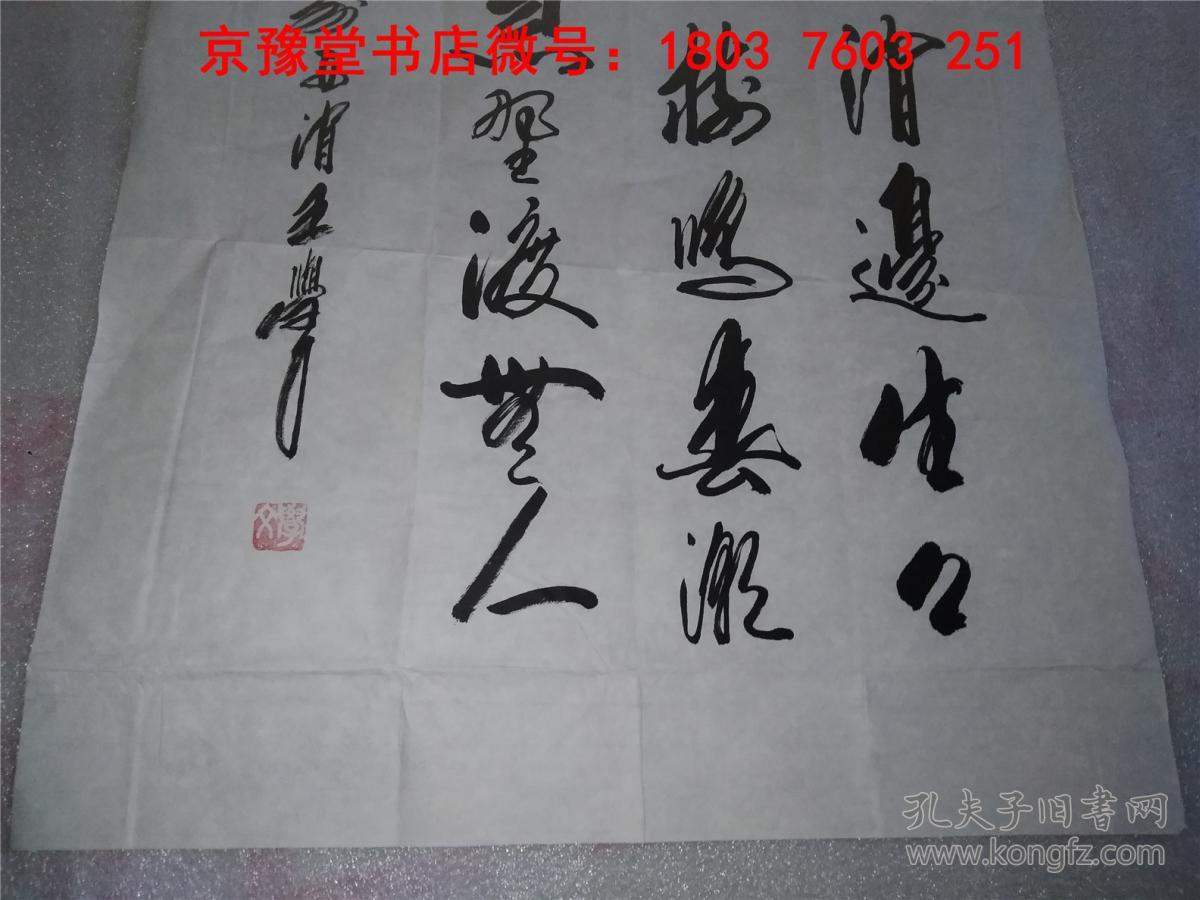 京豫堂书店微号：1803 7603 251
澗邊生上
樹鳴春潮
急野渡無人
澗王學
孔夫子旧书网
www.kongfz.com